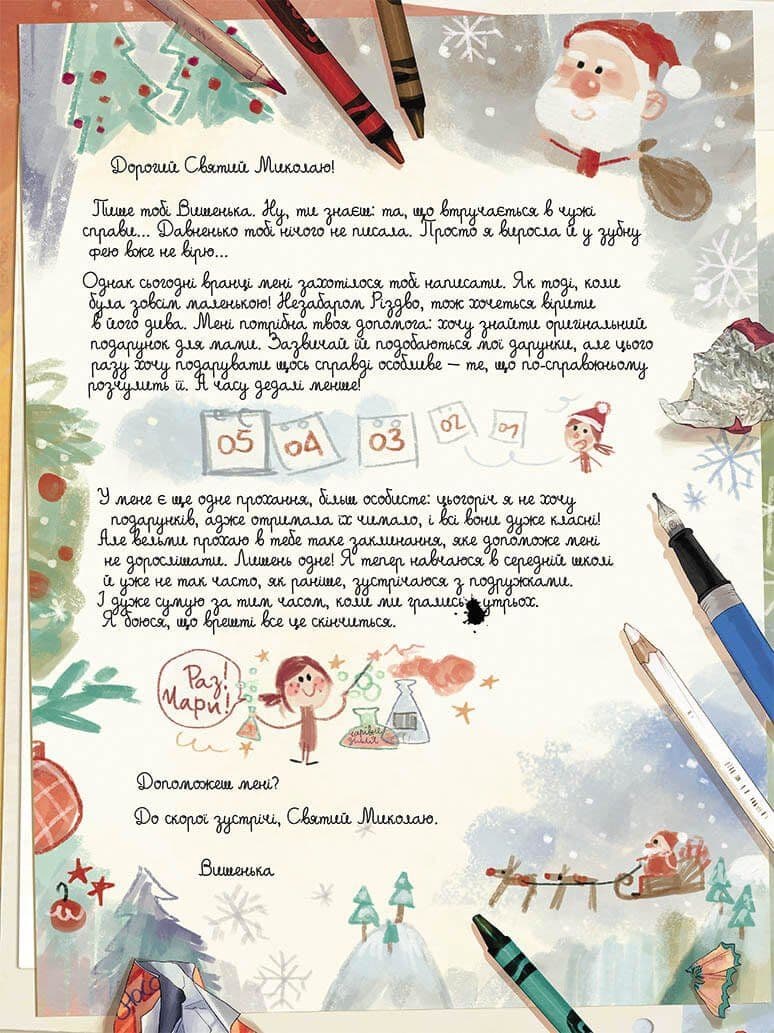 Дорогий Святий Миколаю!
Пише тобі Вишенька. Ну, ти знаєш: та, що втручається в чужі
справи... Давненько тобі нічого не писала. Просто я виросла й у зубну
фею вже не вірю...
Однак сьогодні вранці мені захотілося тобі написати. Як тоді, коли
була зовсім маленькою! Незабаром Різдво, тож хочеться вірити
в його дива. Мені потрібна твоя допомога: хочу знайти оригінальний
подарунок для мами. Зазвичай їй подобаються мої дарунки, але цього
разу хочу подарувати щось справді особливе — те, що по-справжньому
розчулить її. А часу дедалі менше!
05 04 03 02 01
У мене є ще одне прохання, більш особисте: цьогоріч я не хочу
подарунків, адже отримала їх чимало, і всі вони дуже класні!
Але вельми прохаю в тебе таке заклинання, яке допоможе мені
не дорослішати. Лишень одне! Я тепер навчаюся в середній школі
й уже не так часто, як раніше, зустрічаюся з подружками.
І дуже сумую за тим часом, коли ми грались утрьох.
Я боюся, що врешті все це скінчиться.
Раз!
Мари!
чарівне
зілля
Допоможеш мені?
До скорої зустрічі, Святий Миколаю.
Вишенька